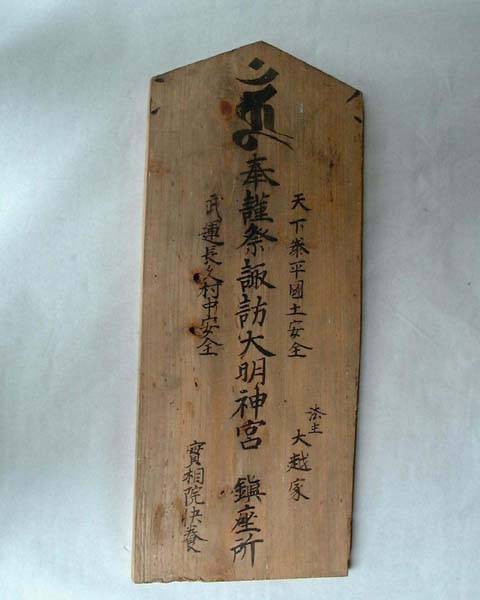 奉謹祭諏訪大明神宮 鎮座所
天下泰平國土安全
武運長久村中安全
法主 大越家
實相院快養